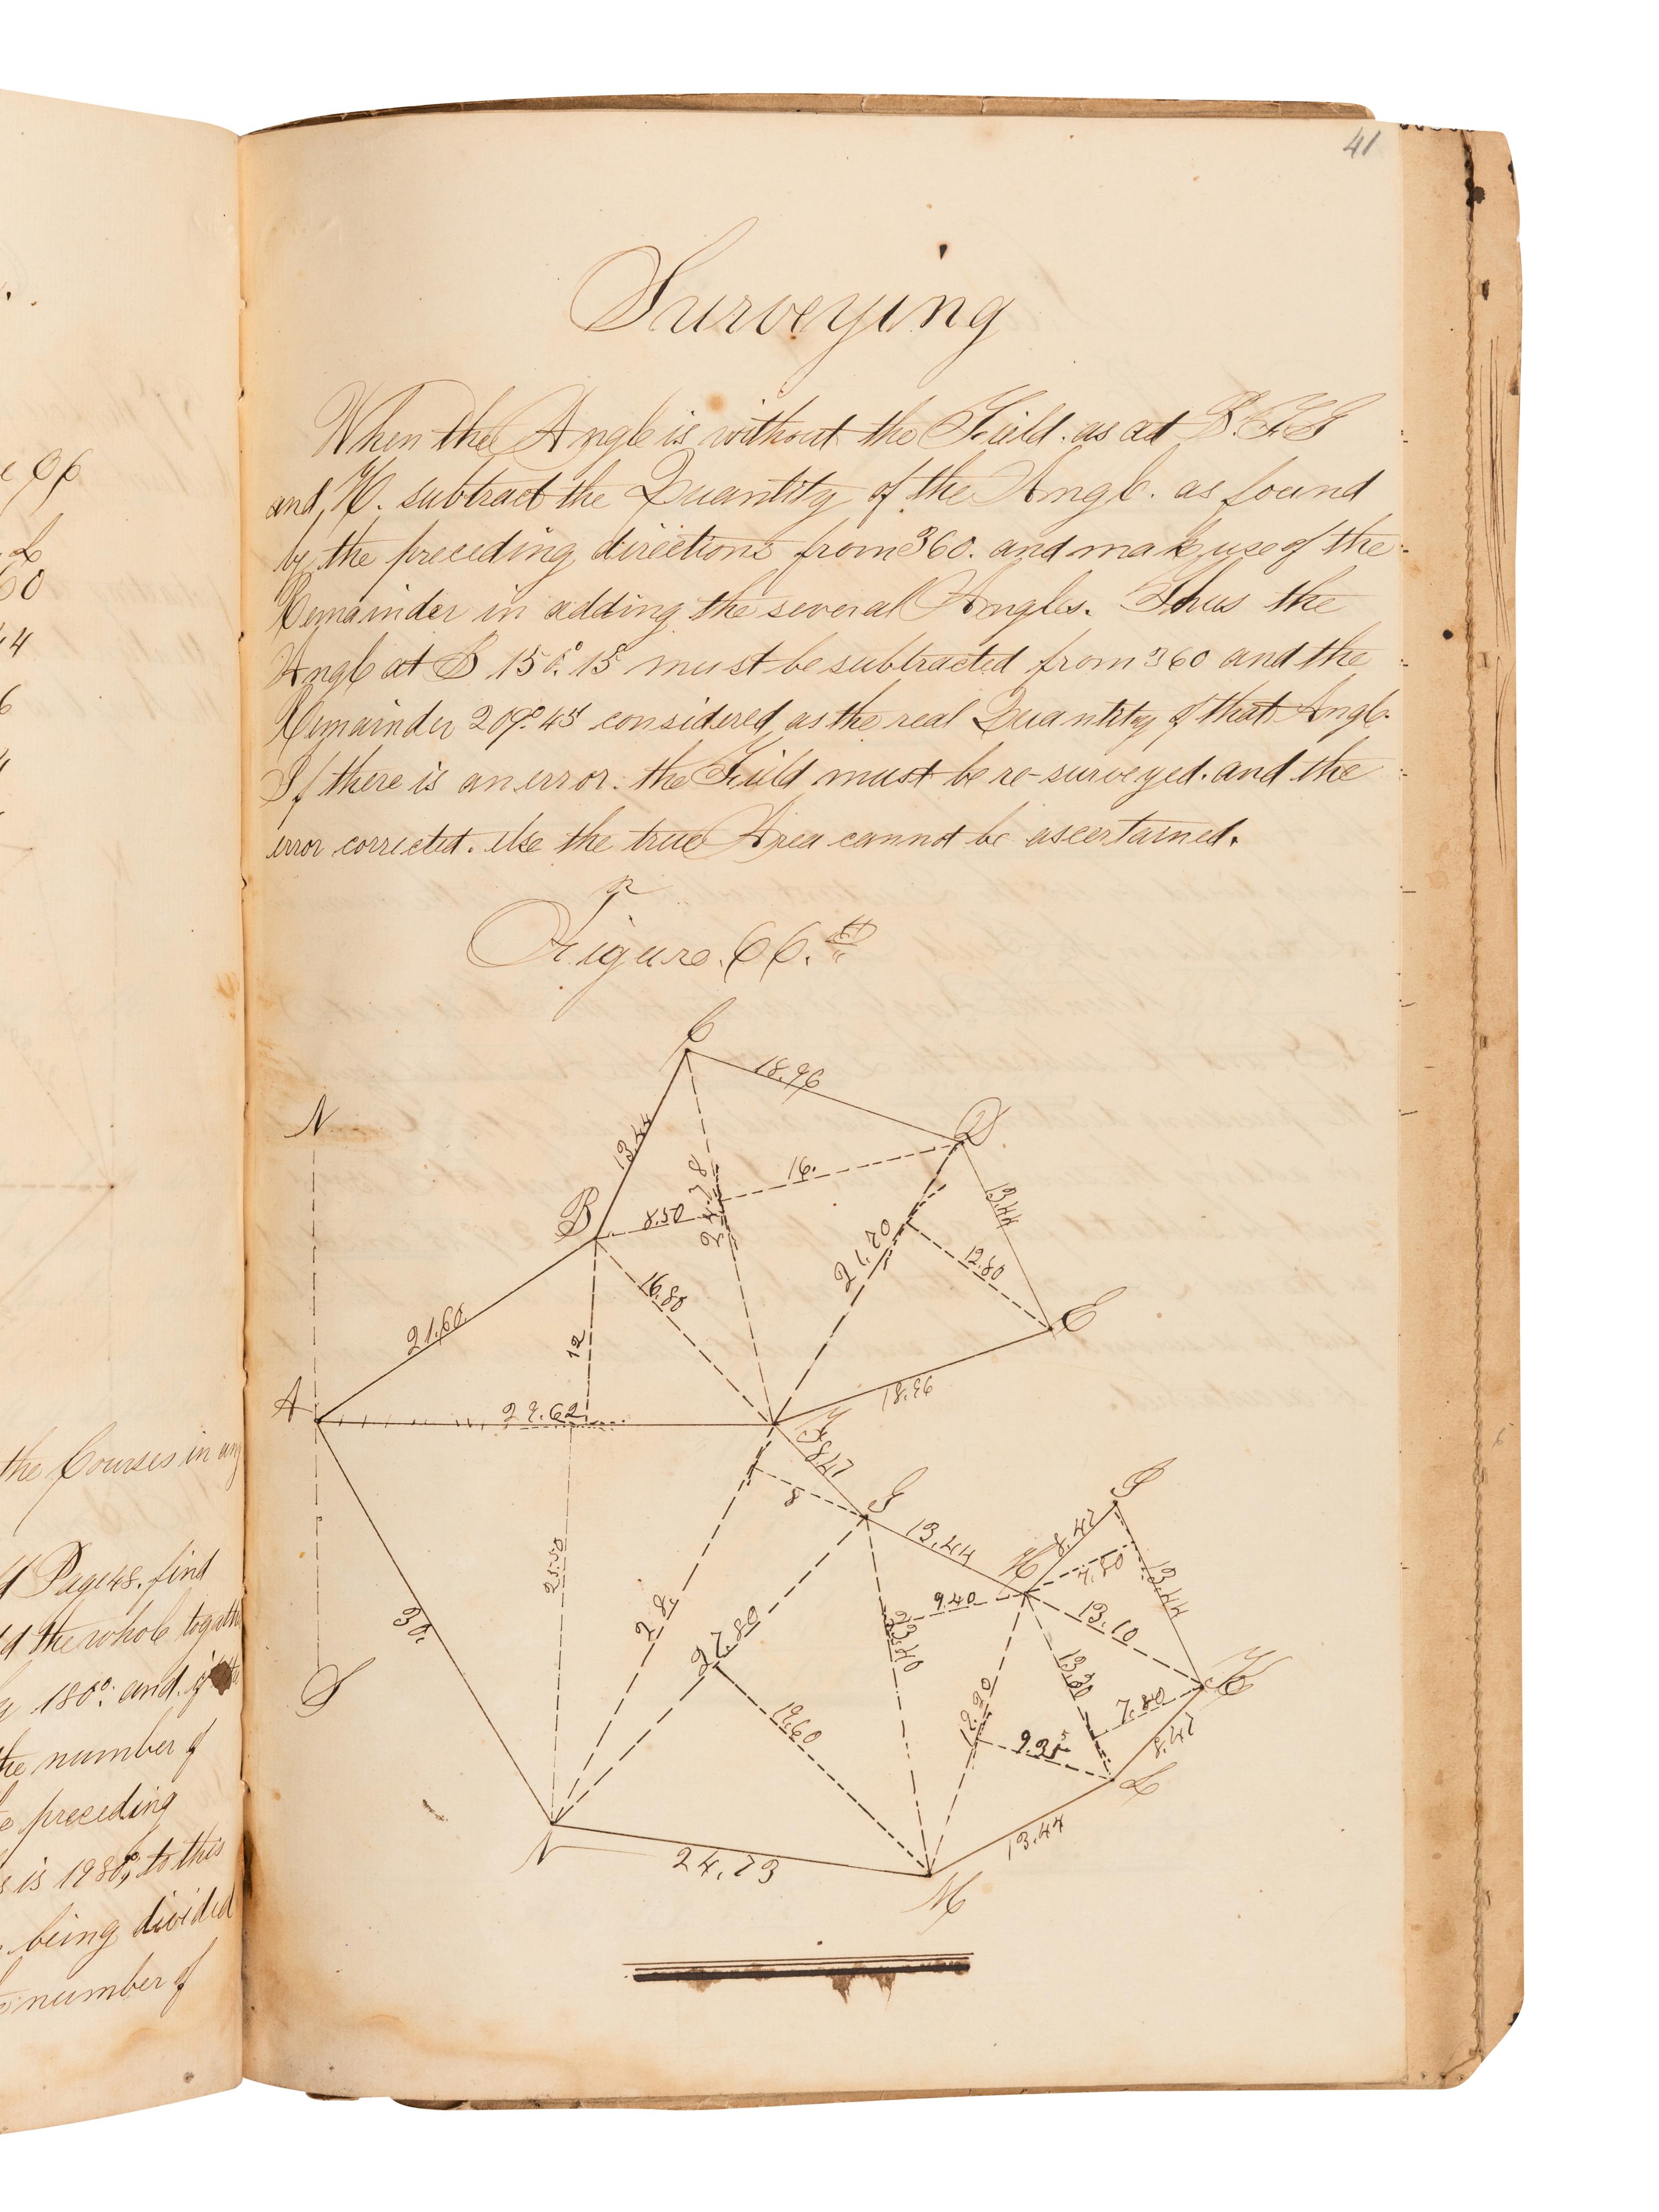 e 96
L
60
44
6
4
the Courses in any
Page 48. find
d the whole togath
180°. and. if
the number of
preceding
s is 1980°, to this
being divided
number of
41
Surveying
When the Angle is without the Field. as at B. F. G
and H. subtract the Quantity of the Angle. as found
by the preceding directions from 360. and mak use of the
Remainder in adding the several Angles. Thus the
Angle at B 150°. 15' must be subtracted from 360 and the
Remainder 209°. 45' considered as the real Quantity of that Angle.
If there is an error. the Field must be re-surveyed. and the
error corrected. else the true Area cannot be ascertained.
Figure. 66.th
C
18.96
N
D
13.44
24.78
16.
B
8.50
13.44
21.70
12.80
16.80
E
21.60.
12
18.96
A
29.62.
F
8.47
8
G
I
13.44
H
8.47
7.80
13.44
25.50
9.40
13.10
28.
23.40
30.
27.89
13.30
K
S
7.80
19.60
19.20
9.25
8.47
L
13.44
N
24.73
M